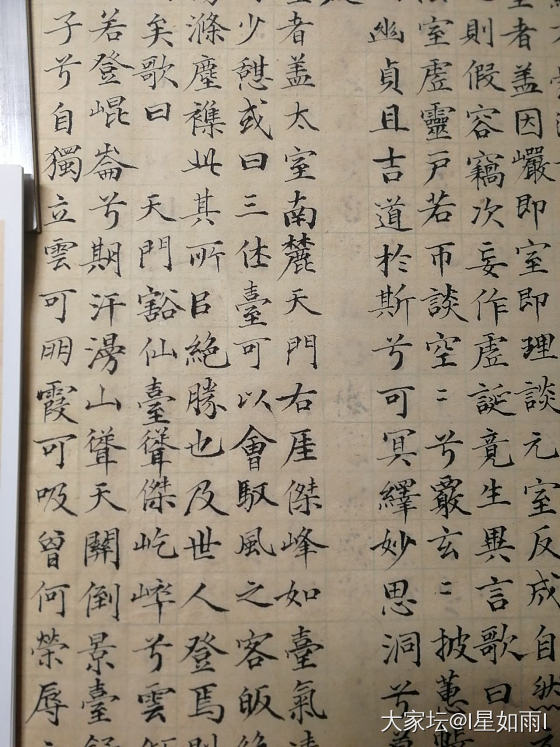 室者盖因巖即室即理談元室反成自然
則假容竊次妄作虛誕竟生異言歌曰
室虛靈户若帀談空〻兮叢玄〻披蕙
幽貞且吉道於斯兮可冥繹妙思洞兮
者盖太室南麓天門右厓傑峰如臺氣
少憩或曰三休臺可以會馭風之客皈
滌塵襟此其所㠯絶勝也及世人登焉則
矣歌曰 天門豁仙臺聳傑屹崒兮雲
若登崐崙兮期汗漫山聳天關倒景臺
子兮自獨立雲可明霞可吸曾何榮辱
大家坛@I星如雨I